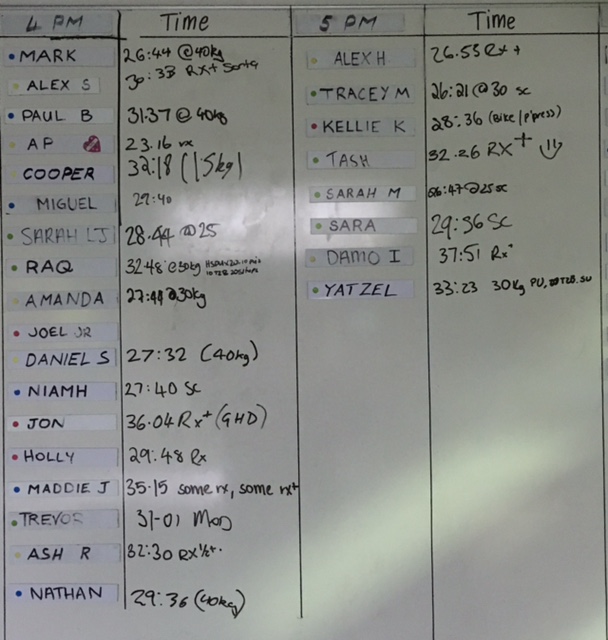 4 PM Time
MARK 26:44 @40kg
ALEX S 30:33 RX+
PAUL B 31:37 @ 40kg
AP 23.16 rx
COOPER 32:18 (15kg)
MIGUEL 27:40
SARAH LJ 28.44 @25
RAQ 32:48 @30kg
AMANDA 27:44 @30kg
JOEL JR
DANIEL S 27:32 (40kg)
NIAMH 27:40 SC
JON 36.04 Rx+ (GHD)
HOLLY 29:48 Rx
MADDIE J 35.15 some rx, some rx+
TREVOR 31-01 Mod
ASH R 32:30 RX ½+.
NATHAN 29:36 (40kg)
5 PM Time
ALEX H 26.53 Rx +
TRACEY M 26:21 @30 sc
KELLIE K 28:36 (Bike / p'press)
TASH 32.26 RX+
SARAH M :47 @25 sc
SARA 29:36 SC
DAMO I 37:51 Rx+
YATZEL 33:23 30kg PU, T2B. SU